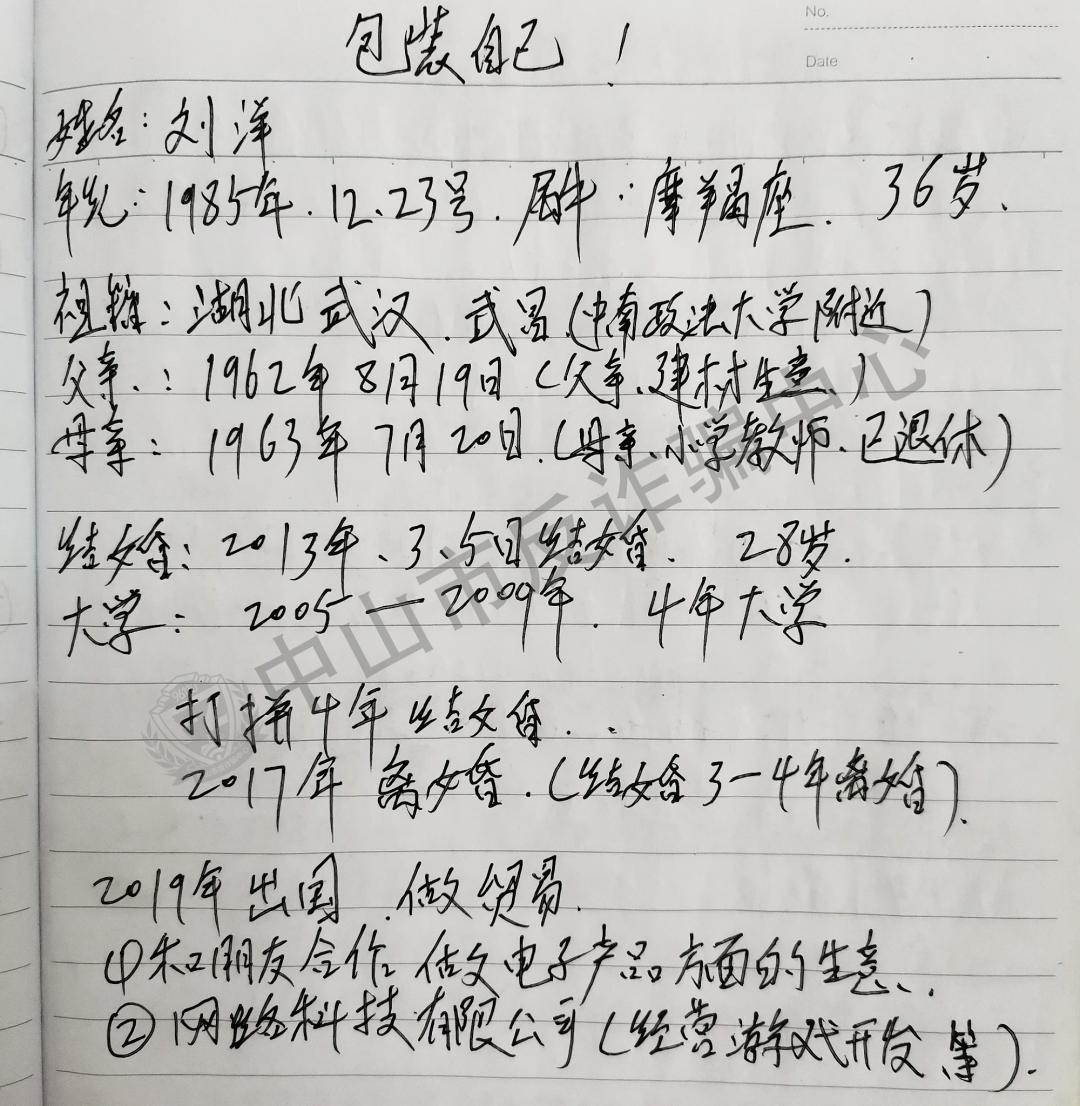 No.
Date
包装自己！
姓名：刘洋
年龄：1985年.12.23号.属牛：摩羯座. 36岁.
祖籍：湖北武汉.武昌(中南政法大学附近)
父亲.：1962年8月19日(父亲.建材生意.)
母亲：1963年7月20日.(母亲.小学教师.已退休)
结婚：2013年.3.5日结婚. 28岁.
大学：2005—2009年. 4年大学
打拼4年结婚..
2017年离婚.(结婚3-4年离婚).
2019年出国.做贸易.
①和朋友合作做电子产品方面的生意.
②网络科技有限公司(经营游戏开发等).
中山市反诈骗中心